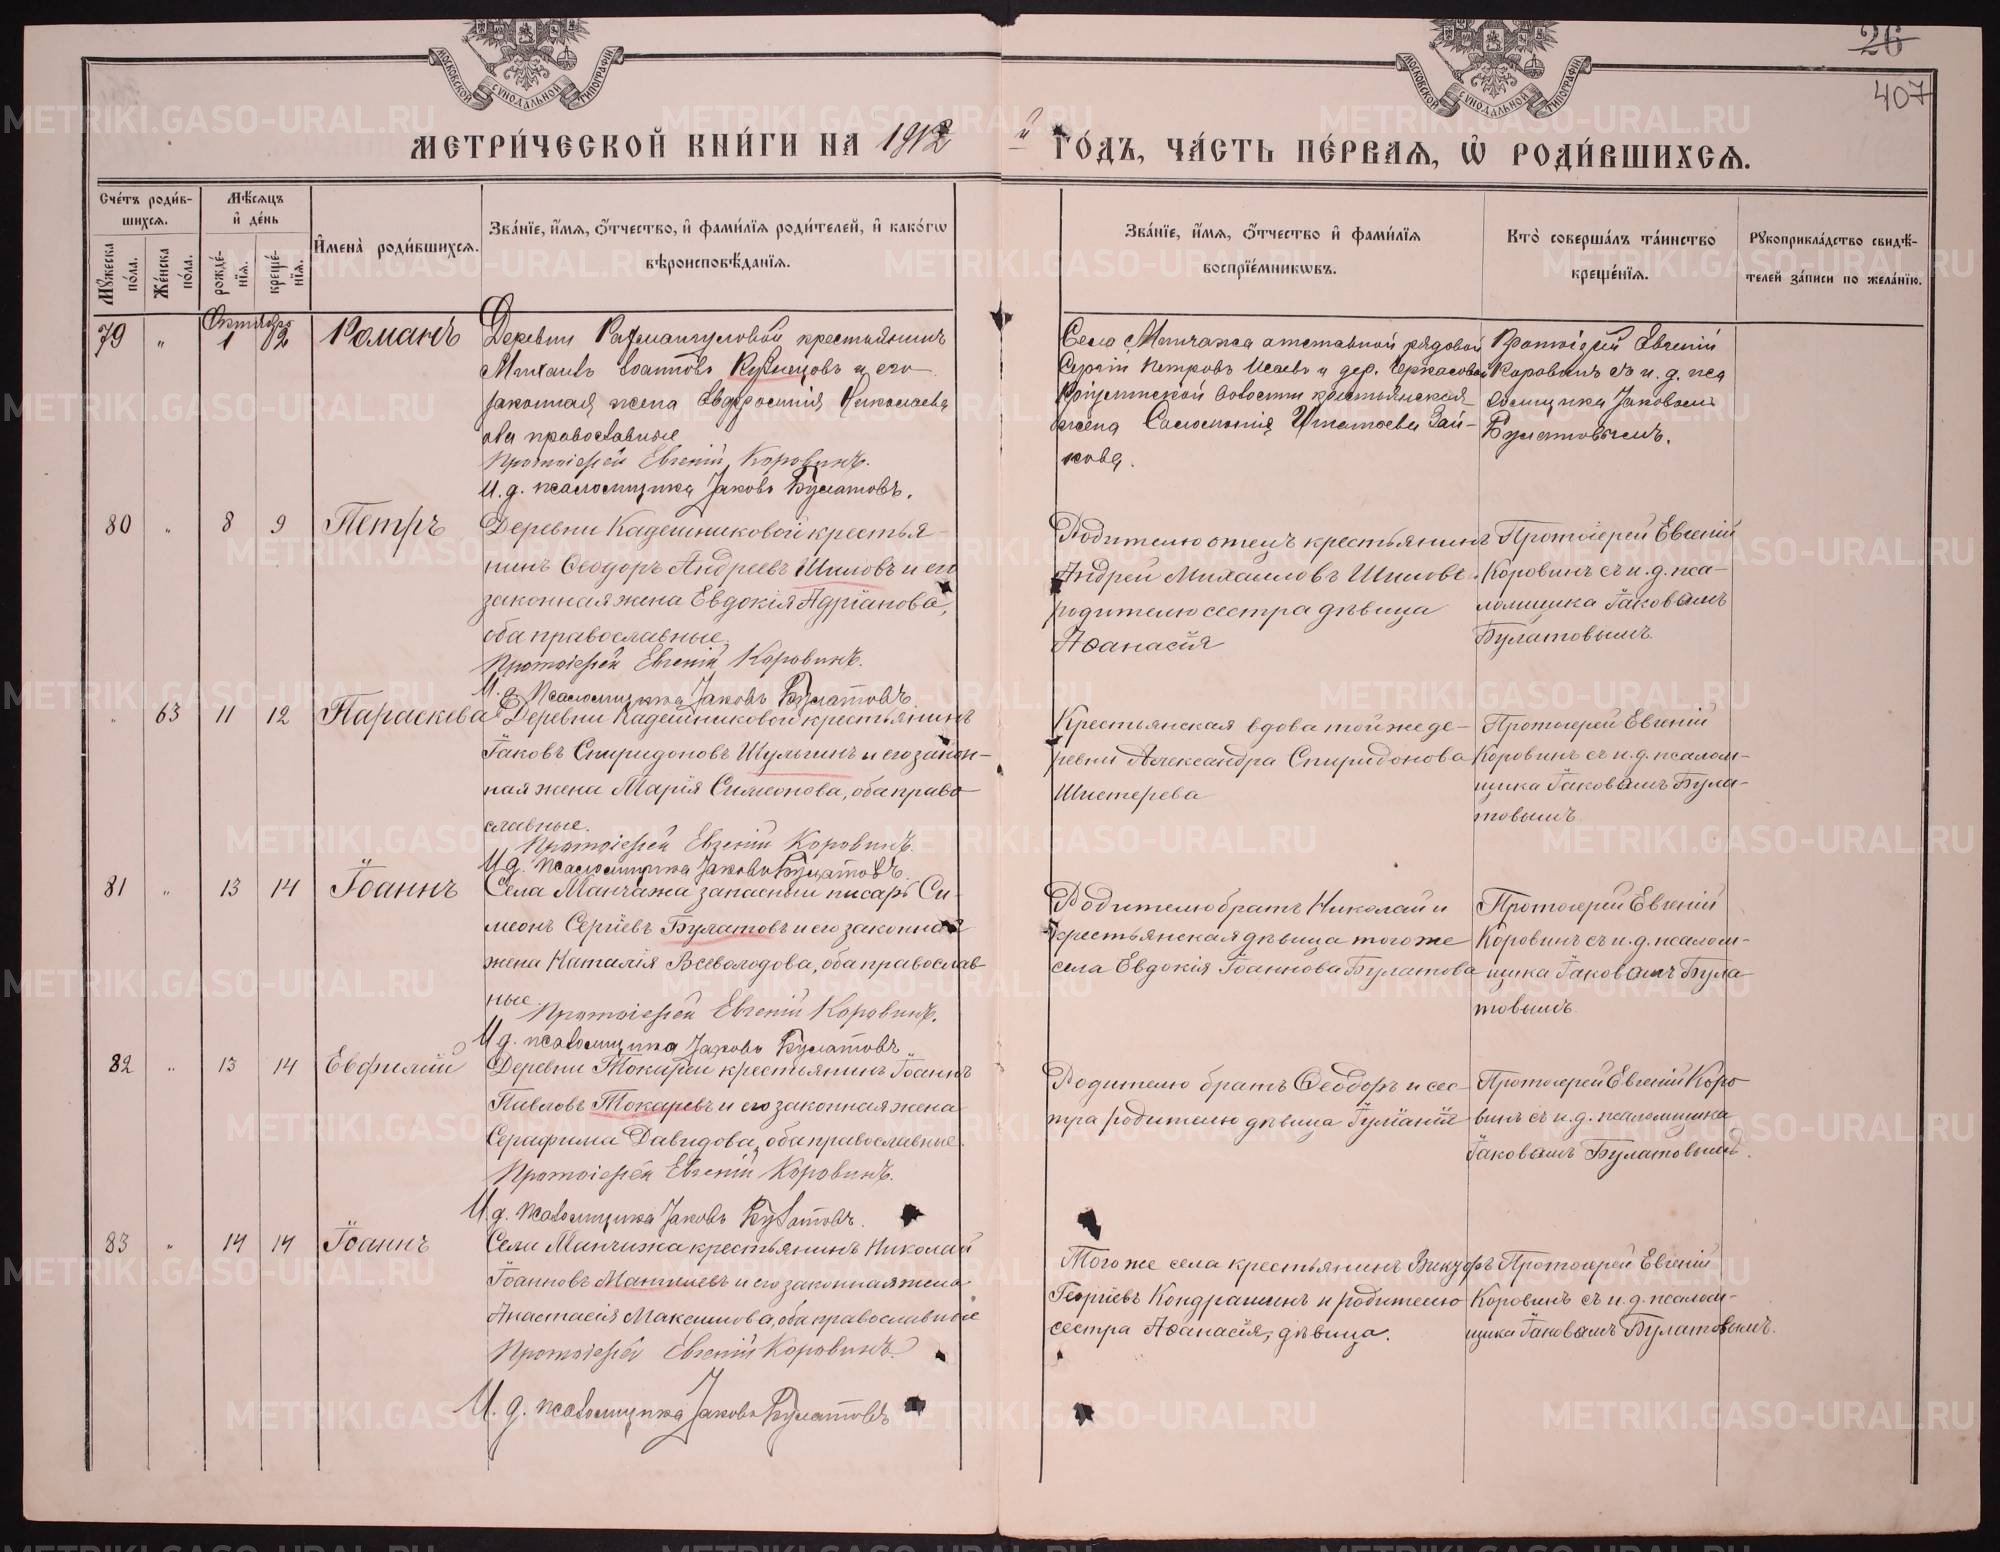 26
407
МОСКОВСКОЙ СУНОДАЛЬНОЙ ТИПОГРАФІИ
МОСКОВСКОЙ СУНОДАЛЬНОЙ ТИПОГРАФІИ
МЕТРИ́ЧЕСКОЙ КНИ́ГИ НА 1912 й ГО́ДЪ, ЧА́СТЬ ПЕ́РВАЯ, Ѡ РОДИ́ВШИХСЯ.
Сче́тъ роди́в-
шихся.
Мꙋ́жеска по́ла.
Же́нска по́ла.
Мѣ́сяцъ
и де́нь
рожде́-
нїя.
креще́-
нїя.
Имена̀ роди́вшихся.
Зва́нїе, и́мя, ѻ́тчество, и фами́лїя роди́телей, и како́гѡ
вѣроисповѣ́данїя.
Зва́нїе, и́мя, ѻ́тчество и фами́лїя
воспрїе́мникѡвъ.
Кто̀ соверша́лъ та́инство
креще́нїя.
Рꙋкоприкла́дство свидѣ́-
телей за́писи по жела́нїю.
Октябрь
79 " 1 2 Романъ
Деревни Рахмангуловой крестьянинъ
Михаилъ Іоанновъ Кузнецовъ и его
законная жена Евфросинія Николаева
оба православные
Протоіерей Евгеній Коровинъ.
И. д. псаломщика Іаковъ Булатовъ.
Села Манчажа отставной рядовой
Сергій Петровъ Исаевъ и дер. Черкасовой
волости крестьянская
жена Саломонія Игнатьева Зай-
кова.
Протоіерей Евгеній
Коровинъ съ и. д. пса
ломщика Іаковомъ
Булатовымъ.
80 " 8 9 Петръ
Деревни Кадешниковой крестья-
нинъ Ѳеодоръ Андреевъ Шиловъ и его
законная жена Евдокія Адріанова,
оба православные.
Протоіерей Евгеній Коровинъ.
И. д. Псаломщика Іаковъ Булатовъ.
Родителю отецъ крестьянинъ
Андрей Михаиловъ Шиловъ и
родителю сестра дѣвица
Аѳанасія
Протоіерей Евгеній
Коровинъ съ и. д. пса-
ломщика Іаковомъ
Булатовымъ
" 63 11 12 Параскева
Деревни Кадешниковой крестьянинъ
Іаковъ Спиридоновъ Шульгинъ и его закон-
ная жена Марія Симеонова, оба право
славные.
Протоіерей Евгеній Коровинъ.
И. д. псаломщика Іаковъ Булатовъ.
Крестьянская вдова той же де-
ревни Александра Спиридонова
Шистерева
Протоіерей Евгеній
Коровинъ съ и. д. псалом-
щика Іаковомъ Була-
товымъ
81 " 13 14 Іоаннъ
Села Манчажа запасный писарь Си-
меонъ Сергіевъ Булатовъ и его законная
жена Наталія Всеволодова, оба православ
ные.
Протоіерей Евгеній Коровинъ.
И д. псаломщика Іаковъ Булатовъ
Родителю братъ Николай и
крестьянская дѣвица того же
села Евдокія Іоаннова Булатова
Протоіерей Евгеній
Коровинъ съ и. д. псалом-
щика Іаковомъ Була
товымъ
82 " 13 14 Евфимій
Деревни Токарей крестьянинъ Іоаннъ
Павловъ Токаревъ и его законная жена
Серафима Давидова, оба православные.
Протоіерей Евгеній Коровинъ.
И. д. псаломщика Іаковъ Булатовъ.
Родителю братъ Ѳеодоръ и сес-
тра родителю дѣвица Іуліанія
Протоіерей Евгеній Коро
винъ съ и. д. псаломщика
Іаковомъ Булатовымъ.
83 " 14 14 Іоаннъ
Села Манчажа крестьянинъ Николай
Іоанновъ и его законная жена
Анастасія Максимова, оба православные
Протоіерей Евгеній Коровинъ.
И. д. псаломщика Іаковъ Булатовъ
Того же села крестьянинъ
Георгіевъ Кондрашинъ и родителю
сестра Аѳанасія, дѣвица.
Протоіерей Евгеній
Коровинъ съ и. д. псалом-
щика Іаковомъ Булатовымъ.
METRIKI.GASO-URAL.RU